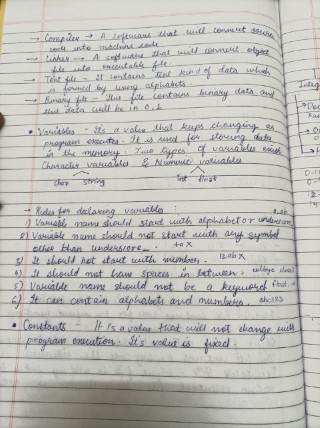 → Compiler → A software that will convert source
code into machine code
→ Linker → A software that will convert object
file into executable file.
→ Text file - It contains that kind of data which
is formed by using alphabets.
→ Binary file - This file contains binary data and
this data will be in 0,1
• Variables - Its a value that keeps changing as
program executes. It is used for storing data
in the memory. Two types of variables exist
Character variables & Numeric variables
char string int float
→ Rules for declaring variables :
1) Variable name should start with alphabet or underscore
2) Variable name should not start with any symbol
other than underscore_.
3) It should not start with number. 12abX
4) It should not have spaces in between. college
5) Variable name should not be a keyword float
6) It can contain alphabets and numbers. abc123
• Constants - It is a value that will not change with
program execution. It's value is fixed.